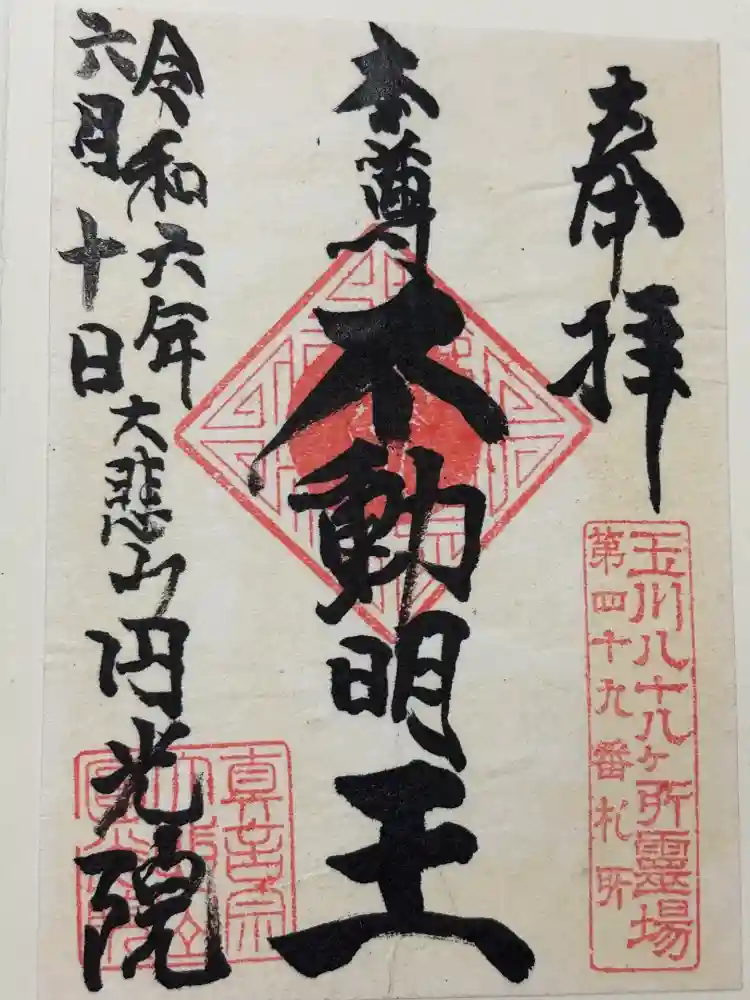 奉拝
玉川八十八ヶ所霊場
第四十九番札所
本尊
不動明王
令和六年
六月十日
大悲山
円光院